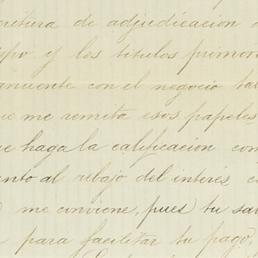 critura de adjudicacion
po y los titulos primor
anuente con el negocio
me remita esos papeles
haga la calificacion con
nto al rebajo del interés,
me conviene, pues tu
para facilitar tu pago,